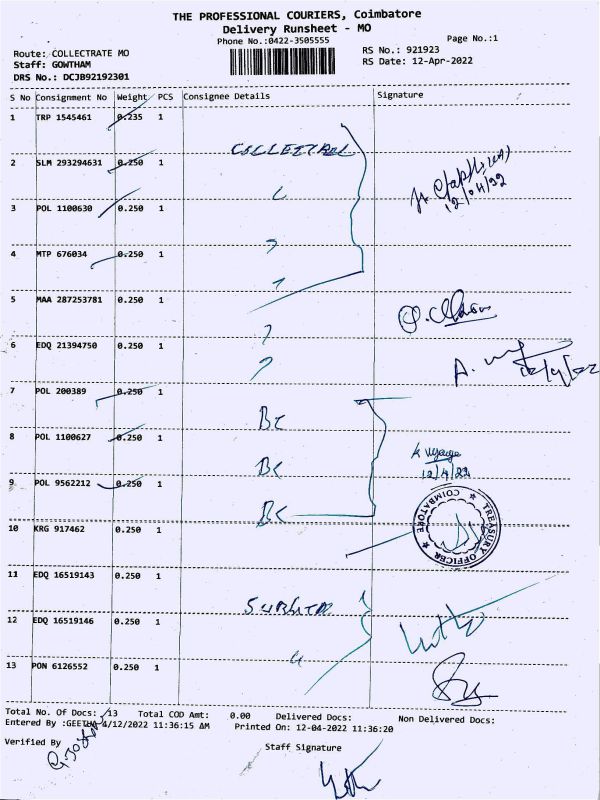 THE PROFESSIONAL COURIERS, Coimbatore
Delivery Runsheet - MO
Phone No.:0422-3505555
Page No.:1
Route: COLLECTRATE MO
RS No.: 921923
Staff: GOWTHAM
RS Date: 12-Apr-2022
DRS No.: DCJB92192301
S No Consignment No Weight PCS Consignee Details Signature
1 TRP 1545461 0.235 1
2 SLM 293294631 0.250 1
12/04/22
3 POL 1100630 0.250 1
4 MTP 676034 0.250 1
5 MAA 287253781 0.250 1
6 EDQ 21394750 0.250 1
7 POL 200389 0.250 1
BC
8 POL 1100627 0.250 1
BC
12/4/22
9 POL 9562212 0.250 1
BC
TREASURY OFFICER COIMBATORE
10 KRG 917462 0.250 1
11 EDQ 16519143 0.250 1
12 EDQ 16519146 0.250 1
13 PON 6126552 0.250 1
Total No. Of Docs: 13 Total COD Amt: 0.00 Delivered Docs: Non Delivered Docs:
Entered By :GEETHA 4/12/2022 11:36:15 AM Printed On: 12-04-2022 11:36:20
Verified By
Staff Signature